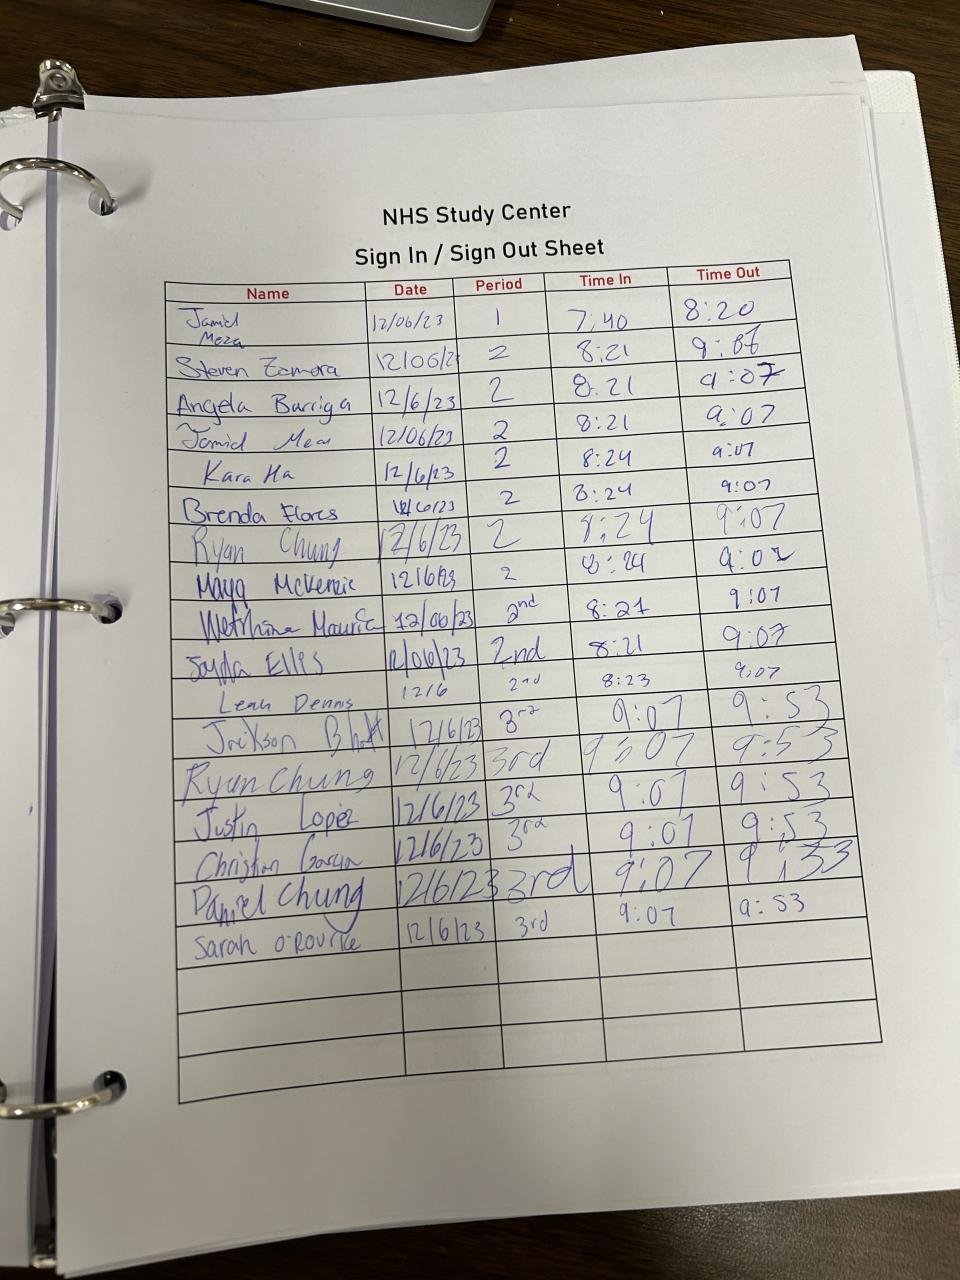 NHS Study Center
Sign In / Sign Out Sheet
Name Date Period Time In Time Out
Jamid
Meza 12/06/23 1 7:40 8:20
Steven Zamora 12/06/2 2 8:21 9:07
Angela Barriga 12/6/23 2 8:21 9:07
Jamid Meza 12/06/23 2 8:21 9:07
Kara Ha 12/6/23 2 8:24 9:07
Brenda Flores 12/6/23 2 8:24 9:07
Ryan Chung 12/6/23 2 8:24 9:07
Maya McKenzie 12/6/23 2 8:24 9:07
12/06/23 2nd 8:21 9:07
Jayda Ellis 12/06/23 2nd 8:21 9:07
Leah Dennis 12/6 2nd 8:23 9:07
Jackson 12/6/23 3rd 9:07 9:53
Ryan Chung 12/6/23 3rd 9:07 9:53
Justin Lopez 12/6/23 3rd 9:07 9:53
Christian Garcia 12/6/23 3rd 9:07 9:53
Daniel Chung 12/6/23 3rd 9:07 9:53
Sarah O'Rourke 12/6/23 3rd 9:07 9:53